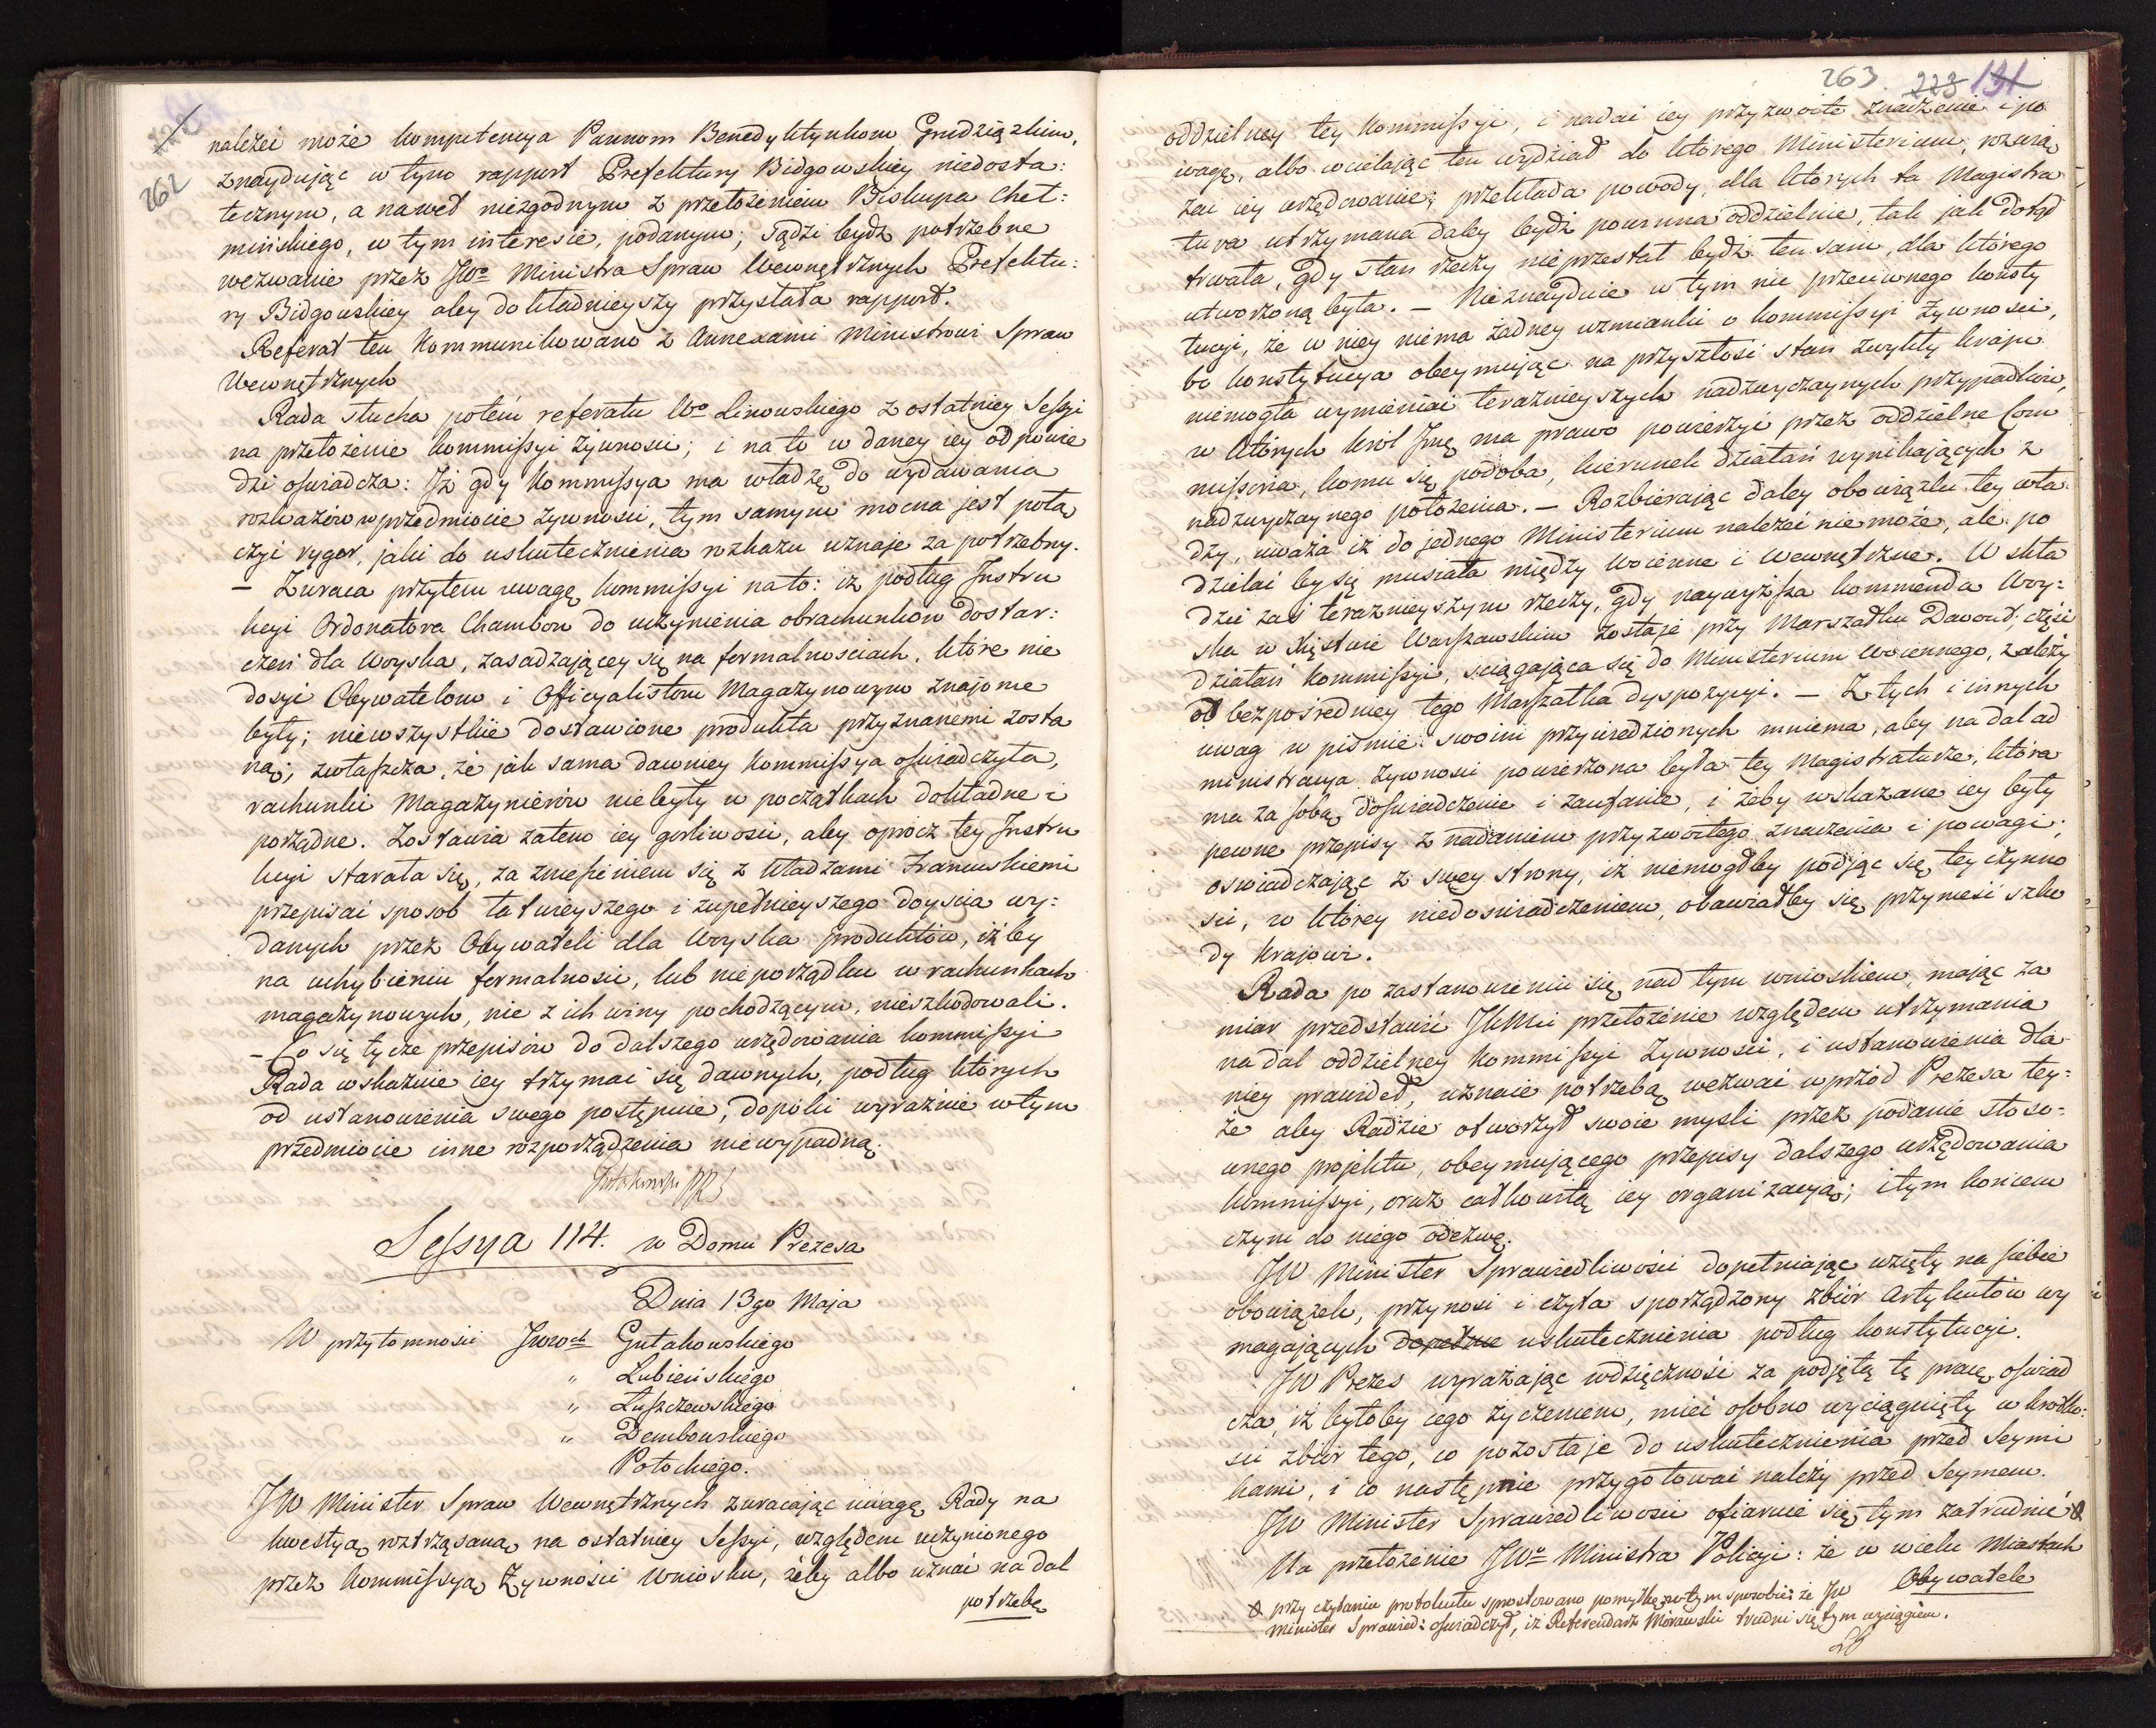 262
należeć może kompetencya Pannom Benedyktynkom Grudziązkim,
znayduiąc w tym rapport Prefektury Bidgowskiey niedosta:
tecznym, a nawet niezgodnym z przełożeniem Biskupa Cheł:
mińskiego, w tym interesie, podanym; sądzi bydź potrzebne
wezwanie przez JWo Ministra Spraw Wewnętrznych Prefektu:
ry Bidgowskiey aby dokładnieyszy przysłała rapport.
Referat ten kommunikowano z Annexami Ministrowi Spraw
Wewnętrznych
Rada słucha potem referatu Wo Linowskiego z ostatniey Sessyi
na przełożenie kommissyi żywności; i na to w daney iey odpowie
dzi oświadcza: Iż gdy Kommissya ma władzę do wydawania
rozkazów w przedmiocie żywności, tym samym mocna jest połą
czyć rygor, jaki do uskutecznienia rozkazu uznaje za potrzebny.
— Zwraca przytem uwagę kommissyi na to: iż podług Instru
kcyi Ordonatora Chambon do uczynienia obrachunków dostar:
czeń dla woyska, zasadzaiącey się na formalnościach, które nie
dosyć Obywatelom i Officyalistom Magazynowym znajome
były; niewszystkie dostawione produkta przyznanemi zosta
ną; zwłaszcza, że jak sama dawniey Kommissya oświadczyła,
rachunki Magazynierów niebyły w początkach dokładne i
porządne. Zostawia zatem iey gorliwości, aby oprócz tey Instru
kcyi starała się, za zniesieniem się z Władzami Francuskiemi
przepisać sposob łatwieyszego i zupełnieyszego doyścia wy:
danych przez Obywateli dla Woyska produktów, iżby
na uchybieniu formalności, lub nieporządku w rachunkach
magazynowych, nie z ich winy pochodzącym, nieszkodowali.
— Co się tycze przepisów do dalszego urzędowania kommissyi
Rada wskazuie iey trzymać się dawnych, podług których
od ustanowienia swego postępuie, dopóki wyraźnie w tym
przedmiocie inne rozporządzenia niewypadną.
Gutakowski PRS
Sessya 114. w Domu Prezesa
Dnia 13go Maja
W przytomności JWWch Gutakowskiego
" Lubieńskiego
" Łuszczewskiego
" Dembowskiego
Potockiego.
JW Minister Spraw Wewnętrznych zwracając uwagę Rady na
kwestyą roztrząsaną na ostatniey Sessyi, względem uczynionego
przez Kommissyą Żywności Wniosku, żeby albo uznać nadal
potrzebę
263. 223 131
oddzielney tey Kommissyi, i nadać iey przyzwoite znaczenie i po
wagę, albo wcielając ten wydział do którego Ministerium, rozwią
zać iey urzędowanie; przekłada powody, dla których ta Magistra
tura utrzymana daley bydź powinna oddzielnie, tak jak dotąd
trwała, gdy stan rzeczy nieprzestał bydź ten sam, dla którego
utworzoną była. — Nieznayduie w tym nic przeciwnego konsty
tucyi, że w niey niema żadney wzmianki o kommissyi żywności,
bo konstytucya obeymując na przyszłość stan zwykły kraju
niemogła wymieniać teraźnieyszych nadzwyczaynych przypadków,
w których Król Jmć ma prawo powierzyć przez oddzielne Com
missoria, komu się podoba, kierunek działań wynikających z
nadzwyczaynego położenia. — Rozbierając daley obowiązki tey wła
dzy, uważa iż do jednego Ministerium należeć nie może, ale po
dzielać by się musiała między Woienne i Wewnętrzne. W skła
dzie zaś teraźnieyszym rzeczy, gdy naywyższa kommenda Woy:
ska w Xięstwie Warszawskim zostaje przy Marszałku Davout; część
działań Kommissyi, sciągająca się do Ministerium Woiennego, zależy
od bezpośredniey tego Marszałka dyspozycyi. — Z tych i innych
uwag w piśmie swoim przywiedzionych mniema, aby nadal ad
ministracya żywności powierzona była tey Magistraturze, która
ma za sobą doświadczenie i zaufanie, i żeby wskazane iey były
pewne przepisy z nadaniem przyzwoitego znaczenia i powagi;
oświadczając z swey strony, iż niemógłby podjąć się tey czynno
ści, w którey niedoświadczeniem, obawiałby się przynieść szko
dy Krajowi.
Rada po zastanowieniu się nad tym wnioskiem, mając za
miar przedstawić JKMci przełożenie względem utrzymania
nadal oddzielney Kommissyi Żywności, i ustanowienia dla
niey prawideł, uznaie potrzebą wezwać wprzód Prezesa tey:
że aby Radzie otworzył swoie myśli przez podanie stoso:
wnego projektu, obeymującego przepisy dalszego urzędowania
kommissyi, oraz całkowitą iey organizacyą; i tym końcem
czyni do niego odezwę.
JW Minister Sprawiedliwości dopełniając wzięty na siebie
obowiązek, przynosi i czyta sporządzony zbiór artykułów wy
magających dopełnie uskutecznienia podług konstytucyi.
JW Prezes wyrażając wdzięczność za podjętą tę pracę, oświad
cza, iż byłoby iego życzeniem, mieć osobno wyciągnięty w krótko:
ści zbiór tego, co pozostaje do uskutecznienia przed Seymi
kami, i co następnie przygotować należy przed Seymem.
JW Minister Sprawiedliwości ofiaruie się tym zatrudnić
Na przełożenie JWo Ministra Policyi: że w wielu Miastach
Obywatele
przy czytaniu protokułu sprostowano pomyłkę w tym sposobie: że JW
Minister Sprawied: oświadczył, iż Referendarz Morawski trudni się tym wyciągiem.